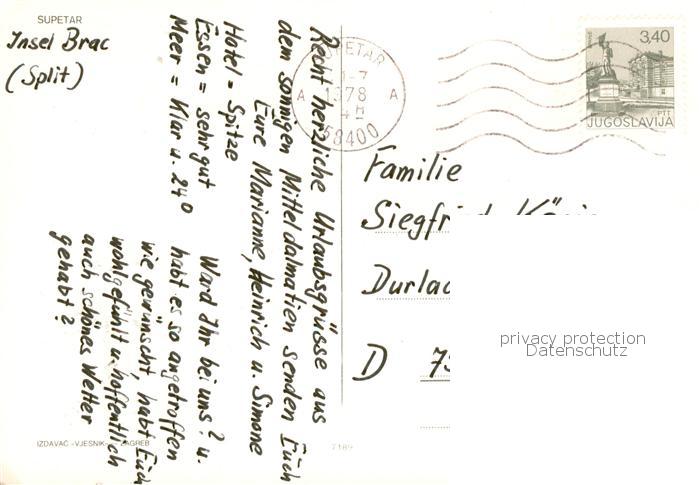 SUPETAR
Insel Brac
(Split)
Recht herzliche Urlaubsgrüsse aus
dem sonnigen Mitteldalmatien senden Euch
Eure Marianne, Heinrich u. Simone
Hotel = Spitze
Essen = sehr gut
Meer = Klar u. 24°
Ward Ihr bei uns? u.
habt es so angetroffen
wie gewünscht, habt Euch
wohlgefühlt u. hoffentlich
auch schönes Wetter
gehabt?
IZDAVAČ »VJESNIK« ZAGREB
7189
SUPETAR
1978
A A
58400
3,40
PTT
JUGOSLAVIJA
Familie
Siegfried
D 75
privacy protection
Datenschutz